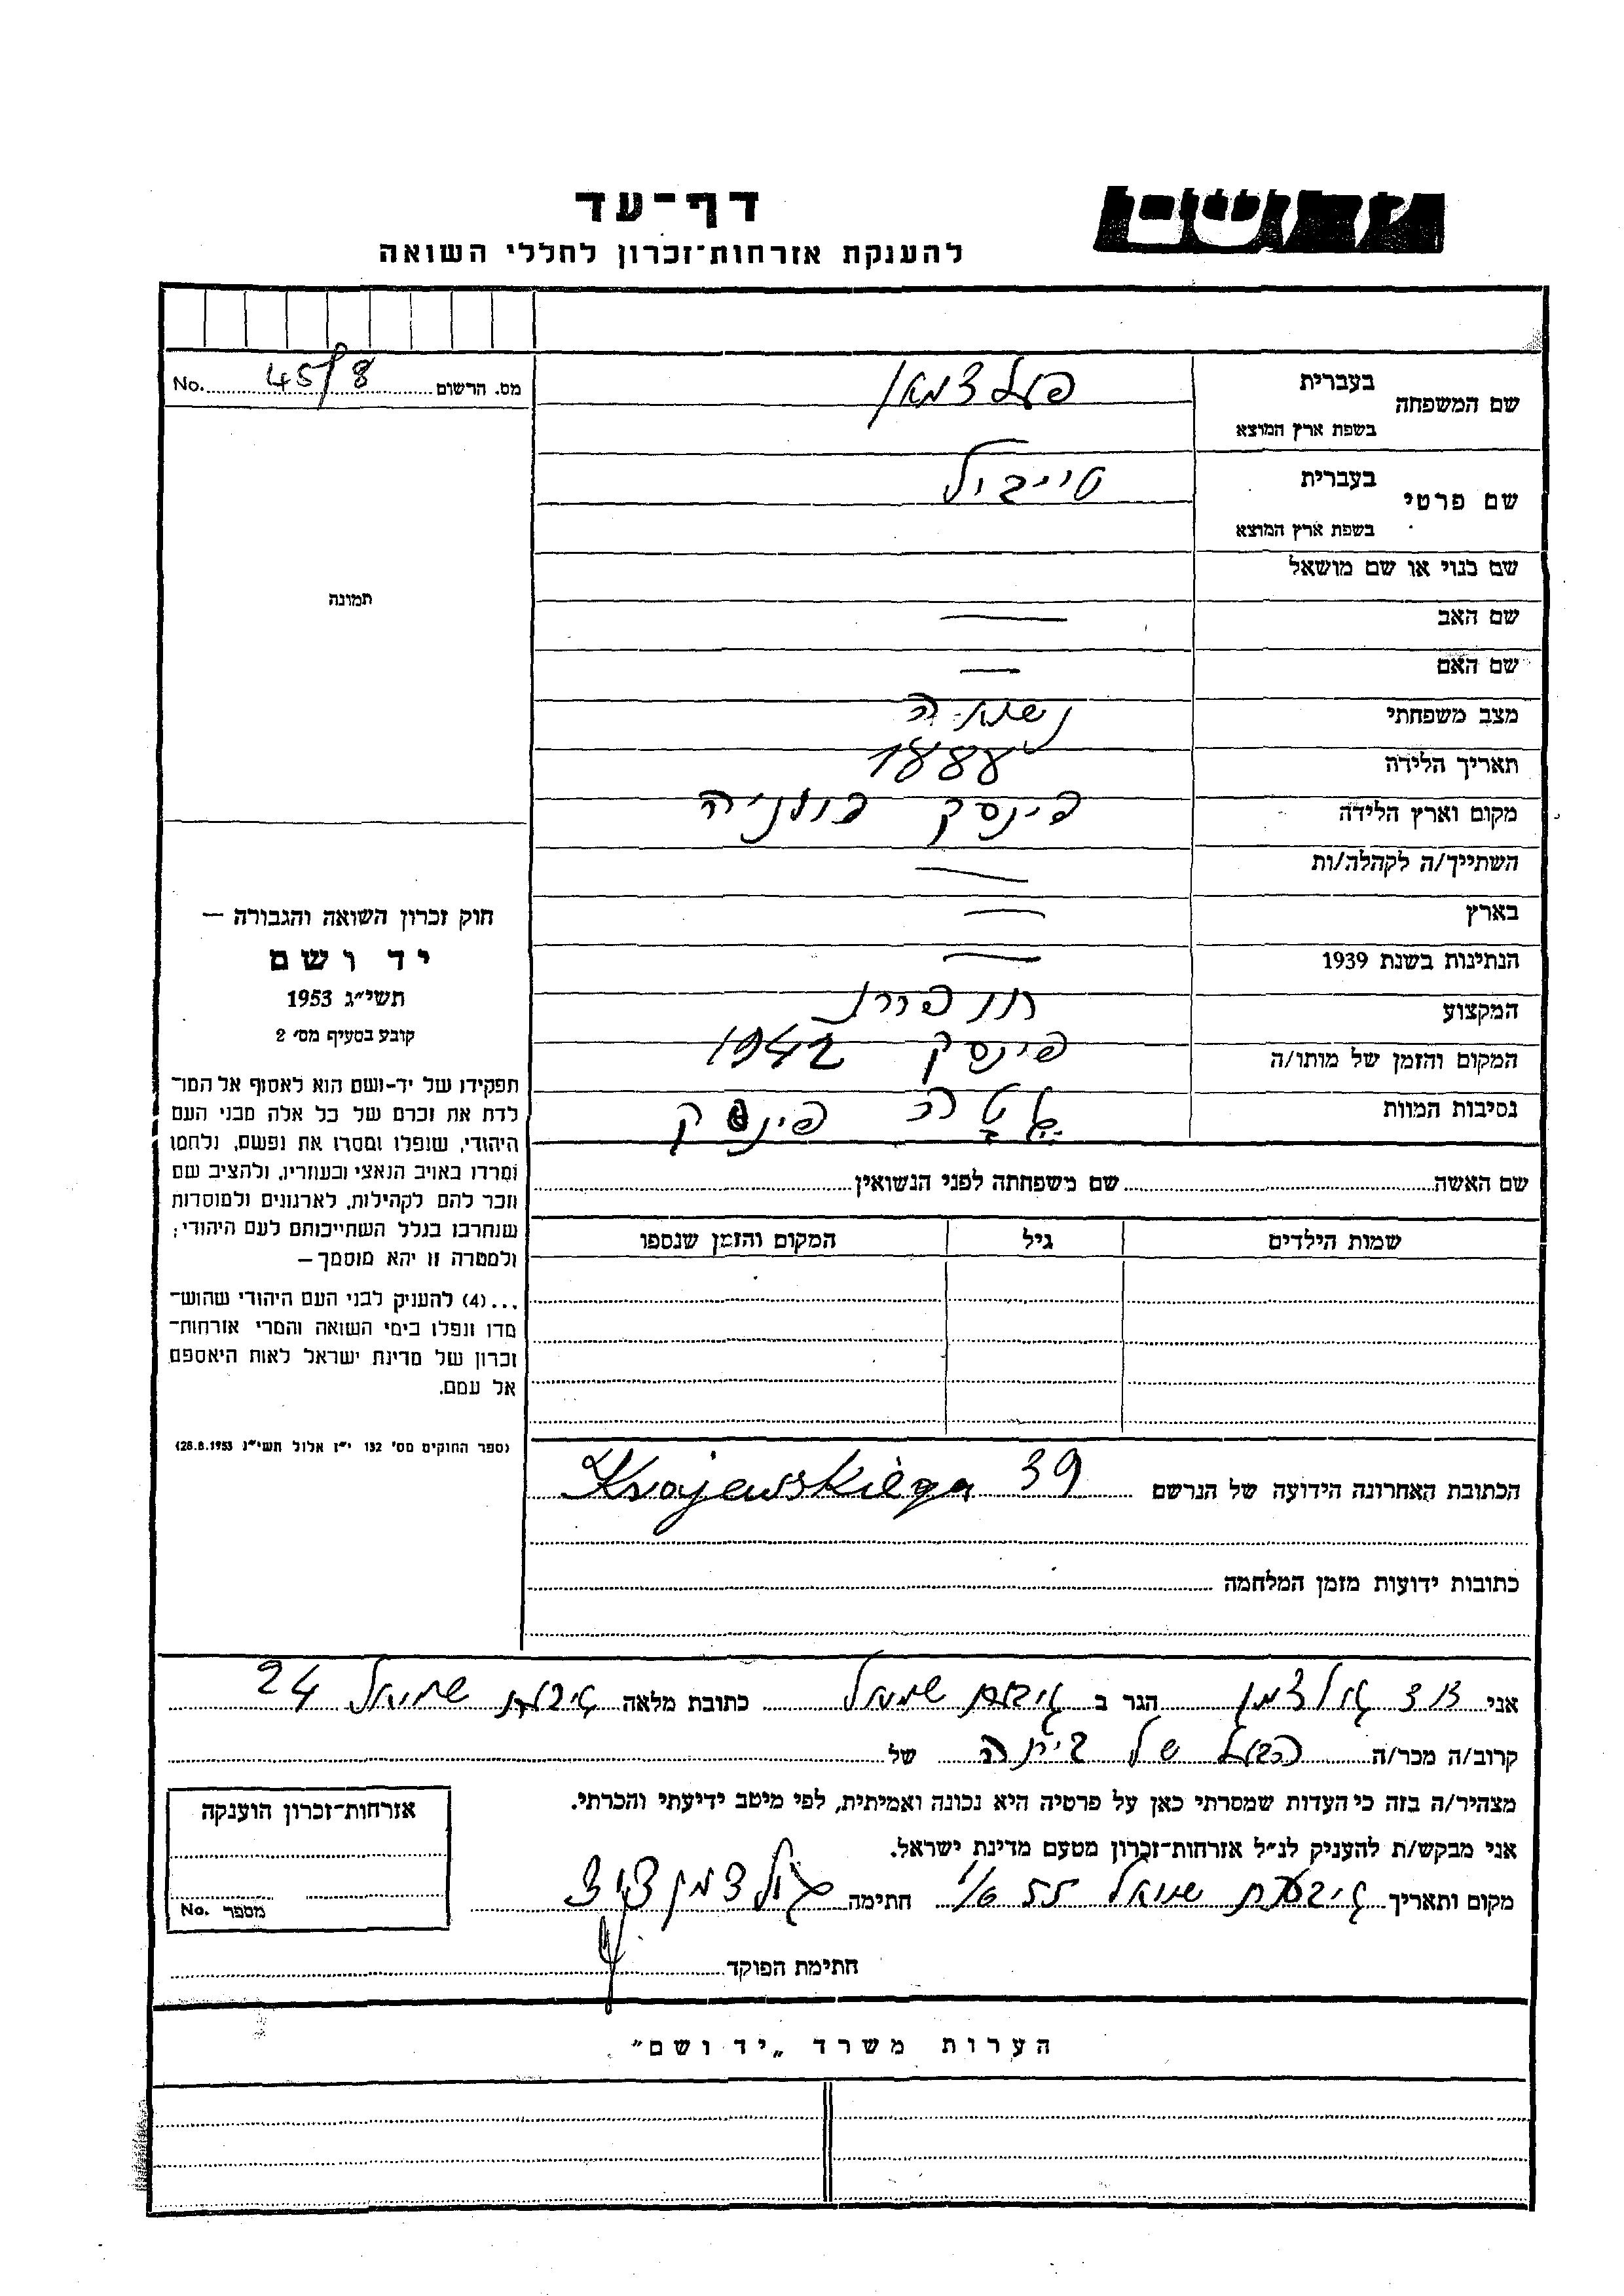 ידושם
דף-עד
להענקת אזרחות-זכרון לחללי השואה
מס. הרשום 45/8 No.
שם המשפחה בעברית פעלדמאן
בשפת ארץ המוצא
שם פרטי בעברית טייבל
בשפת ארץ המוצא
שם כנוי או שם מושאל
שם האב —
שם האם —
מצב משפחתי נשואה
תאריך הלידה 1888
מקום וארץ הלידה פינסק פולניה
השתייך/ה לקהלה/ות —
בארץ —
הנתינות בשנת 1939 —
המקצוע
המקום והזמן של מותו/ה פינסק 1942
נסיבות המוות גטה פינסק
שם האשה שם משפחתה לפני הנשואין
שמות הילדים גיל המקום והזמן שנספו
הכתובת האחרונה הידועה של הנרשם Krajewskiego 39
כתובות ידועות מזמן המלחמה
תמונה
חוק זכרון השואה והגבורה —
יד ושם
תשי״ג 1953
קובע בסעיף מס׳ 2
תפקידו של יד-ושם הוא לאסוף אל המו־
לדת את זכרם של כל אלה מבני העם
היהודי, שנפלו ומסרו את נפשם, נלחמו
ומרדו באויב הנאצי ובעוזריו, ולהציב שם
וזכר להם לקהילות, לארגונים ולמוסדות
שנחרבו בגלל השתייכותם לעם היהודי;
ולמטרה זו יהא מוסמך —
...(4) להעניק לבני העם היהודי שהוש־
מדו ונפלו בימי השואה והמרי אזרחות־
זכרון של מדינת ישראל לאות היאספם
אל עמם.
(ספר החוקים מס׳ 132 י״ז אלול תשי״ג 28.8.1953)
אני דוד גולדמן הגר ב גיבעת שמואל כתובת מלאה גיבעת שמואל 24
קרוב/ה מכר/ה הבעל של של
מצהיר/ה בזה כי העדות שמסרתי כאן על פרטיה היא נכונה ואמיתית, לפי מיטב ידיעתי והכרתי.
אני מבקש/ת להעניק לנ״ל אזרחות-זכרון מטעם מדינת ישראל.
מקום ותאריך גיבעת שמואל חתימה גולדמן דוד
חתימת הפוקד
אזרחות-זכרון הוענקה
מספר No.
הערות משרד „יד ושם״